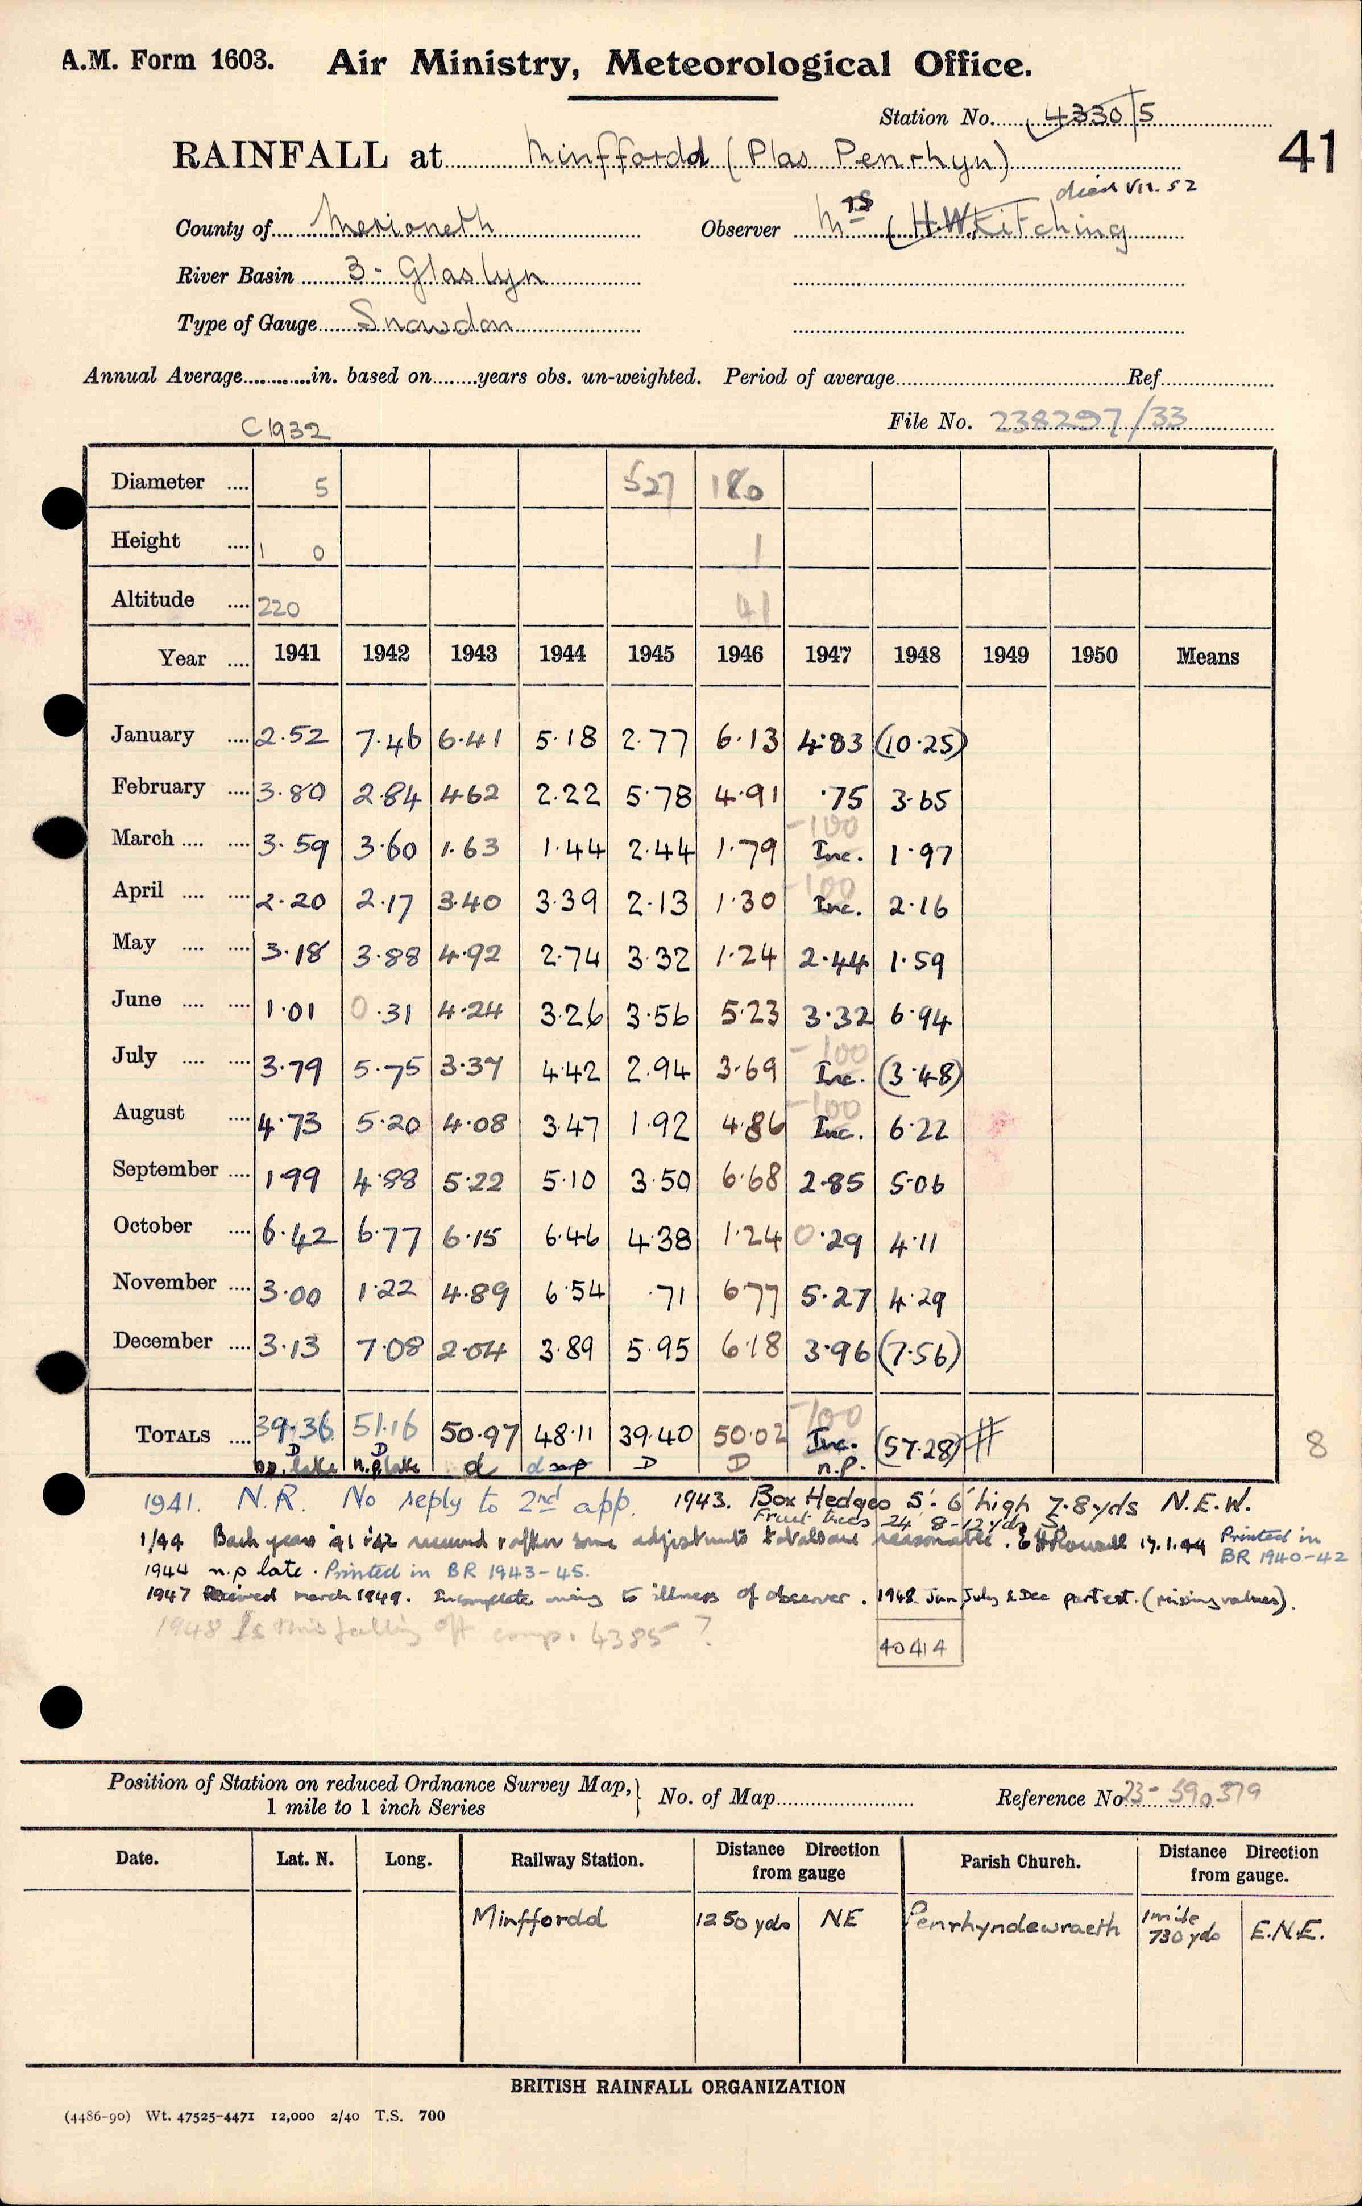 A.M. Form 1603. Air Ministry, Meteorological Office.
Station No. 4330/5
41
RAINFALL at Minffordd (Plas Penrhyn)
died VII. 52
County of Merioneth Observer Mrs (H.W. Kitching
River Basin 3 - Glaslyn
Type of Gauge Snowdon
Annual Average............in. based on........years obs. un-weighted. Period of average Ref.
File No. 238297/33
C1932
Diameter .... 5 527 180
Height .... 1 0 1
Altitude .... 220 41
Year .... 1941 1942 1943 1944 1945 1946 1947 1948 1949 1950 Means
January .... 2.52 7.46 6.41 5.18 2.77 6.13 4.83 (10.25)
February .... 3.80 2.84 4.62 2.22 5.78 4.91 .75 3.65
-100
March .... .... 3.59 3.60 1.63 1.44 2.44 1.79 Inc. 1.97
-100
April .... .... 2.20 2.17 3.40 3.39 2.13 1.30 Inc. 2.16
May .... .... 3.18 3.88 4.92 2.74 3.32 1.24 2.44 1.59
June .... .... 1.01 0.31 4.24 3.26 3.56 5.23 3.32 6.94
-100
July .... .... 3.79 5.75 3.37 4.42 2.94 3.69 Inc. (3.48)
-100
August .... 4.73 5.20 4.08 3.47 1.92 4.86 Inc. 6.22
September .... 1.99 4.88 5.22 5.10 3.50 6.68 2.85 5.06
October .... 6.42 6.77 6.15 6.46 4.38 1.24 0.29 4.11
November .... 3.00 1.22 4.89 6.54 .71 6.77 5.27 4.29
December .... 3.13 7.08 2.04 3.89 5.95 6.18 3.96 (7.56)
-100
TOTALS .... 39.36 51.16 50.97 48.11 39.40 50.02 Inc. (57.28) #
8
D D d d D D n.p.
n.p. late n.p. late
1941. N.R. No reply to 2nd app. 1943. Box Hedges 5'-6' high 7.8 yds N.E.W.
Fruit trees 24' 8-12 yds S.
1/44 Both years '41 & '42 received & after some adjustments totals are reasonable. 17.1.44 Printed in
BR 1940-42
1944 n.p late. Printed in BR 1943-45.
1947 Received march 1949. Incomplete owing to illness of observer. 1948 Jan, July & Dec part est. (missing values).
1948 Is this falling off comp. 4385 ?
40414
Position of Station on reduced Ordnance Survey Map, } No. of Map Reference No 23-590379
1 mile to 1 inch Series
Date. Lat. N. Long. Railway Station. Distance Direction from gauge Parish Church. Distance Direction from gauge.
Minffordd 1250 yds NE Penrhyndewraeth 1 mile 730 yds E.N.E.
BRITISH RAINFALL ORGANIZATION
(4486-90) Wt. 47525-4471 12,000 2/40 T.S. 700